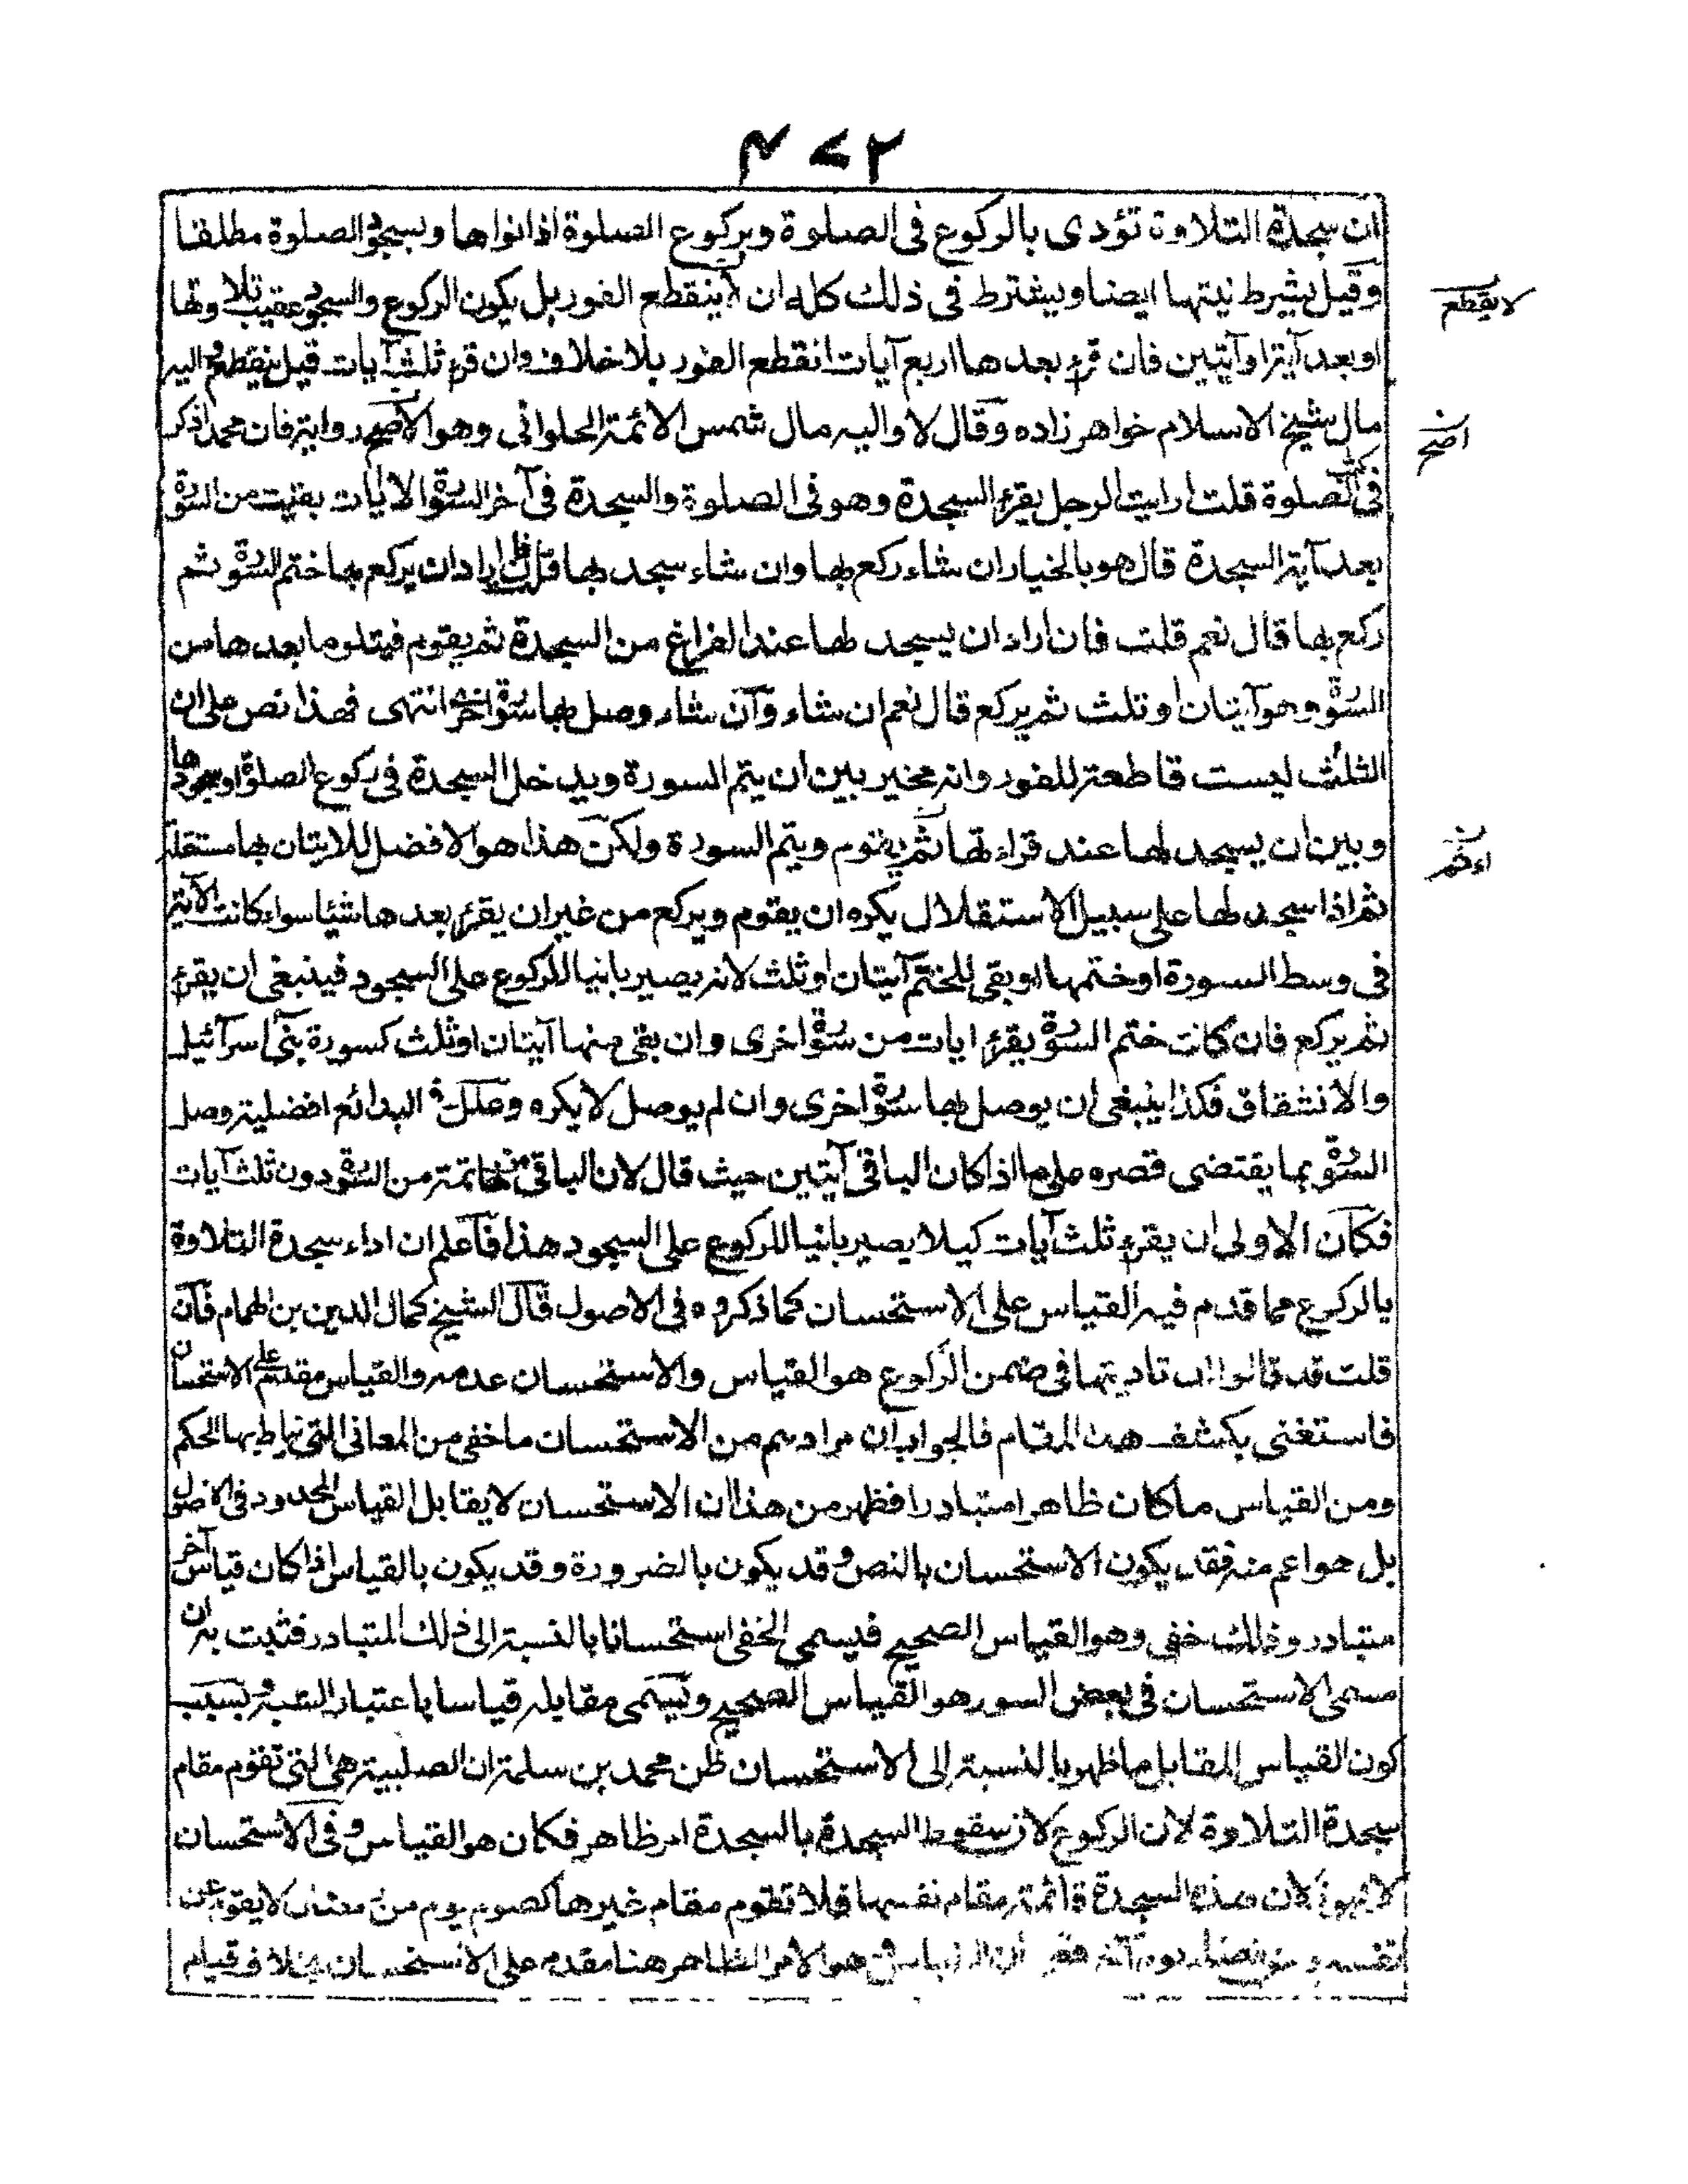 ۴۷۲
ان سجدة التلاوة تؤدى بالركوع فى الصلوة وبركوع الصلوة اذا نواها وبسجود الصلوة مطلقا
وقيل يشترط نيتها ايضا ويشترط فى ذلك كله ان لا ينقطع الفور بل يكون الركوع والسجود عقيب تلاوتها
لا يقطع
او بعد آية او آيتين فان قرء بعدها اربع آيات انقطع الفور بلا خلاف وان قرء ثلث آيات قيل ينقطع واليه
مال شيخ الاسلام خواهر زاده وقال لا واليه مال شمس الائمة الحلوانى وهو الاصح رواية فان محمدا ذكر
اصح
فى كتاب الصلوة قلت ارايت الرجل يقرء السجدة وهو فى الصلوة والسجدة فى آخر السورة الا ايات بقيت من السورة
بعد آية السجدة قال هو بالخيار ان شاء ركع بها وان شاء سجد بها قلت فان اراد ان يركع بها ختم السورة ثم
ركع بها قال نعم قلت فان اراد ان يسجد لها عند الفراغ من السجدة ثم يقوم فيتلو ما بعدها من
السورة وهو آيتان او ثلث ثم يركع قال نعم ان شاء وان شاء وصل بها سورة اخرى انتهى فهذا نص على ان
الثلث ليست قاطعة للفور وانه مخير بين ان يتم السورة ويدخل السجدة فى ركوع الصلوة او سجودها
وبين ان يسجد لها عند قراءتها ثم يقوم ويتم السورة ولكن هذا هو الافضل للاتيان بها مستقلة
ثم اذا سجد لها على سبيل الاستقلال يكره ان يقوم ويركع من غير ان يقرء بعدها شئيا سواء كانت الآية
فى وسط السورة او ختمها او بقى للختم آيتان او ثلث لانه يصير بانيا للركوع على السجود فينبغى ان يقرء
ثم يركع فان كانت ختم السورة يقرء ايات من سورة اخرى وان بقى منها آيتان او ثلث كسورة بنى اسرآئيل
والانشقاق فكذا ينبغى ان يوصل بها سورة اخرى وان لم يوصل لا يكره وعلل فى البدائع افضلية وصل
السورة بما يقتضى قصره على ما اذا كان الباقى آيتين حيث قال لان الباقى من خاتمة من السورة دون ثلث آيات
فكان الاولى ان يقرء ثلث آيات كيلا يصير بانيا للركوع على السجود هذا فاعلم ان اداء سجدة التلاوة
بالركوع مما قدم فيه القياس على الاستحسان كما ذكروه فى الاصول قال الشيخ كمال الدين بن الهمام فان
قلت قد قالوا ان تاديتها فى ضمن الركوع هو القياس والاستحسان عدمه والقياس مقدم على الاستحسان
فاستغنى بكشف هذا المقام فالجواب ان مرادهم من الاستحسان ما خفى من المعانى التى يناط بها الحكم
ومن القياس ما كان ظاهرا متبادرا فظهر من هذا ان الاستحسان لا يقابل القياس المحدود فى الاصول
بل هو اعم منه فقد يكون الاستحسان بالنص وقد يكون بالضرورة وقد يكون بالقياس اذا كان قياس آخر
متبادر وذلك خفى وهو القياس الصحيح فيسمى الخفى استحسانا بالنسبة الى ذلك المتبادر فثبت به ان
مسمى الاستحسان فى بعض السور هو القياس الصحيح وتسمى مقابله قياسا باعتبار الشبه وبسبب
كون القياس المقابل ما ظهر بالنسبة الى الاستحسان ظن محمد بن سلمة ان الصلبية هى التى تقوم مقام
سجدة التلاوة لا الركوع لان سقوط السجدة بالسجدة امر ظاهر فكان هو القياس وفى الاستحسان
لا يجوز لان هذه السجدة قائمة مقام نفسها فلا تقوم مقام غيرها كصوم يوم من رمضان لا يقوم عن
نفسه وعن قضاء يوم آخر ان القياس هو الامر الظاهر هنا مقدم على الاستحسان بخلاف قيام